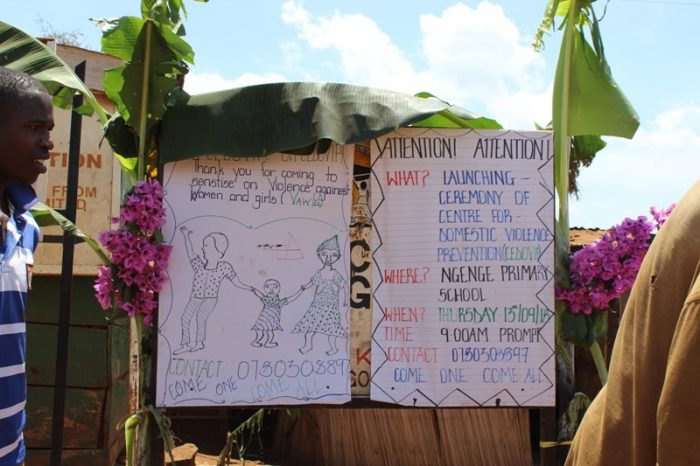 TION
FROM
Thank you for coming to
senstise on Violence against
Women and girls (VAWG)
CONTACT 0780303897
COME ONE COME ALL
OG
K
ATTENTION! ATTENTION!
WHAT? LAUNCHING -
CEREMONY OF
CENTRE FOR -
DOMESTIC VIOLENCE
PREVENTION (CEDOVIP)
WHERE? NGENGE PRIMARY
SCHOOL
WHEN? THURSDAY
TIME 9:00AM PROMPT
CONTACT 0780303897
COME ONE COME ALL